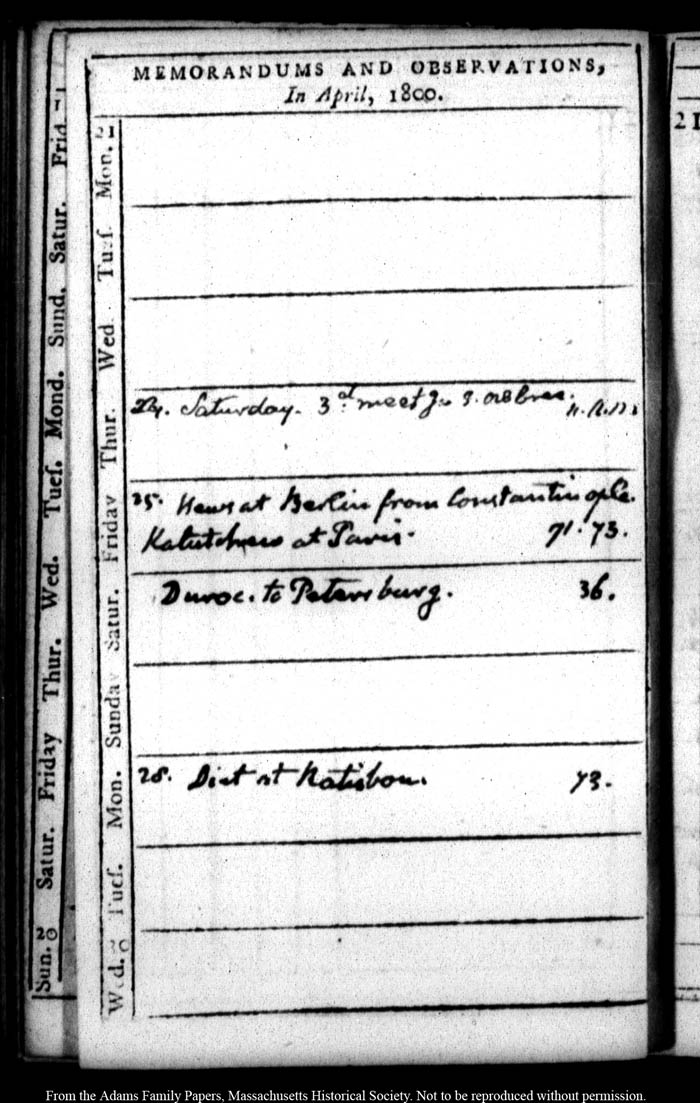 MEMORANDUMS AND OBSERVATIONS,
In April, 1800.
21
Mon.
Tuesf.
Wed.
24. Saturday. 3d: meetg.
Thur.
25. News at Berlin from Constantinople.
at Paris. 71. 73.
Friday
Duroc. to Petersburg. 36.
Satur.
Sunday
28. Diet at Ratisbon. 73.
Mon.
Tuesf.
30
Wed.
1
Frid
Satur.
Sund.
Mond.
Tuesf.
Wed.
Thur.
Friday
Satur.
20
Sun.
21
From the Adams Family Papers, Massachusetts Historical Society. Not to be reproduced without permission.